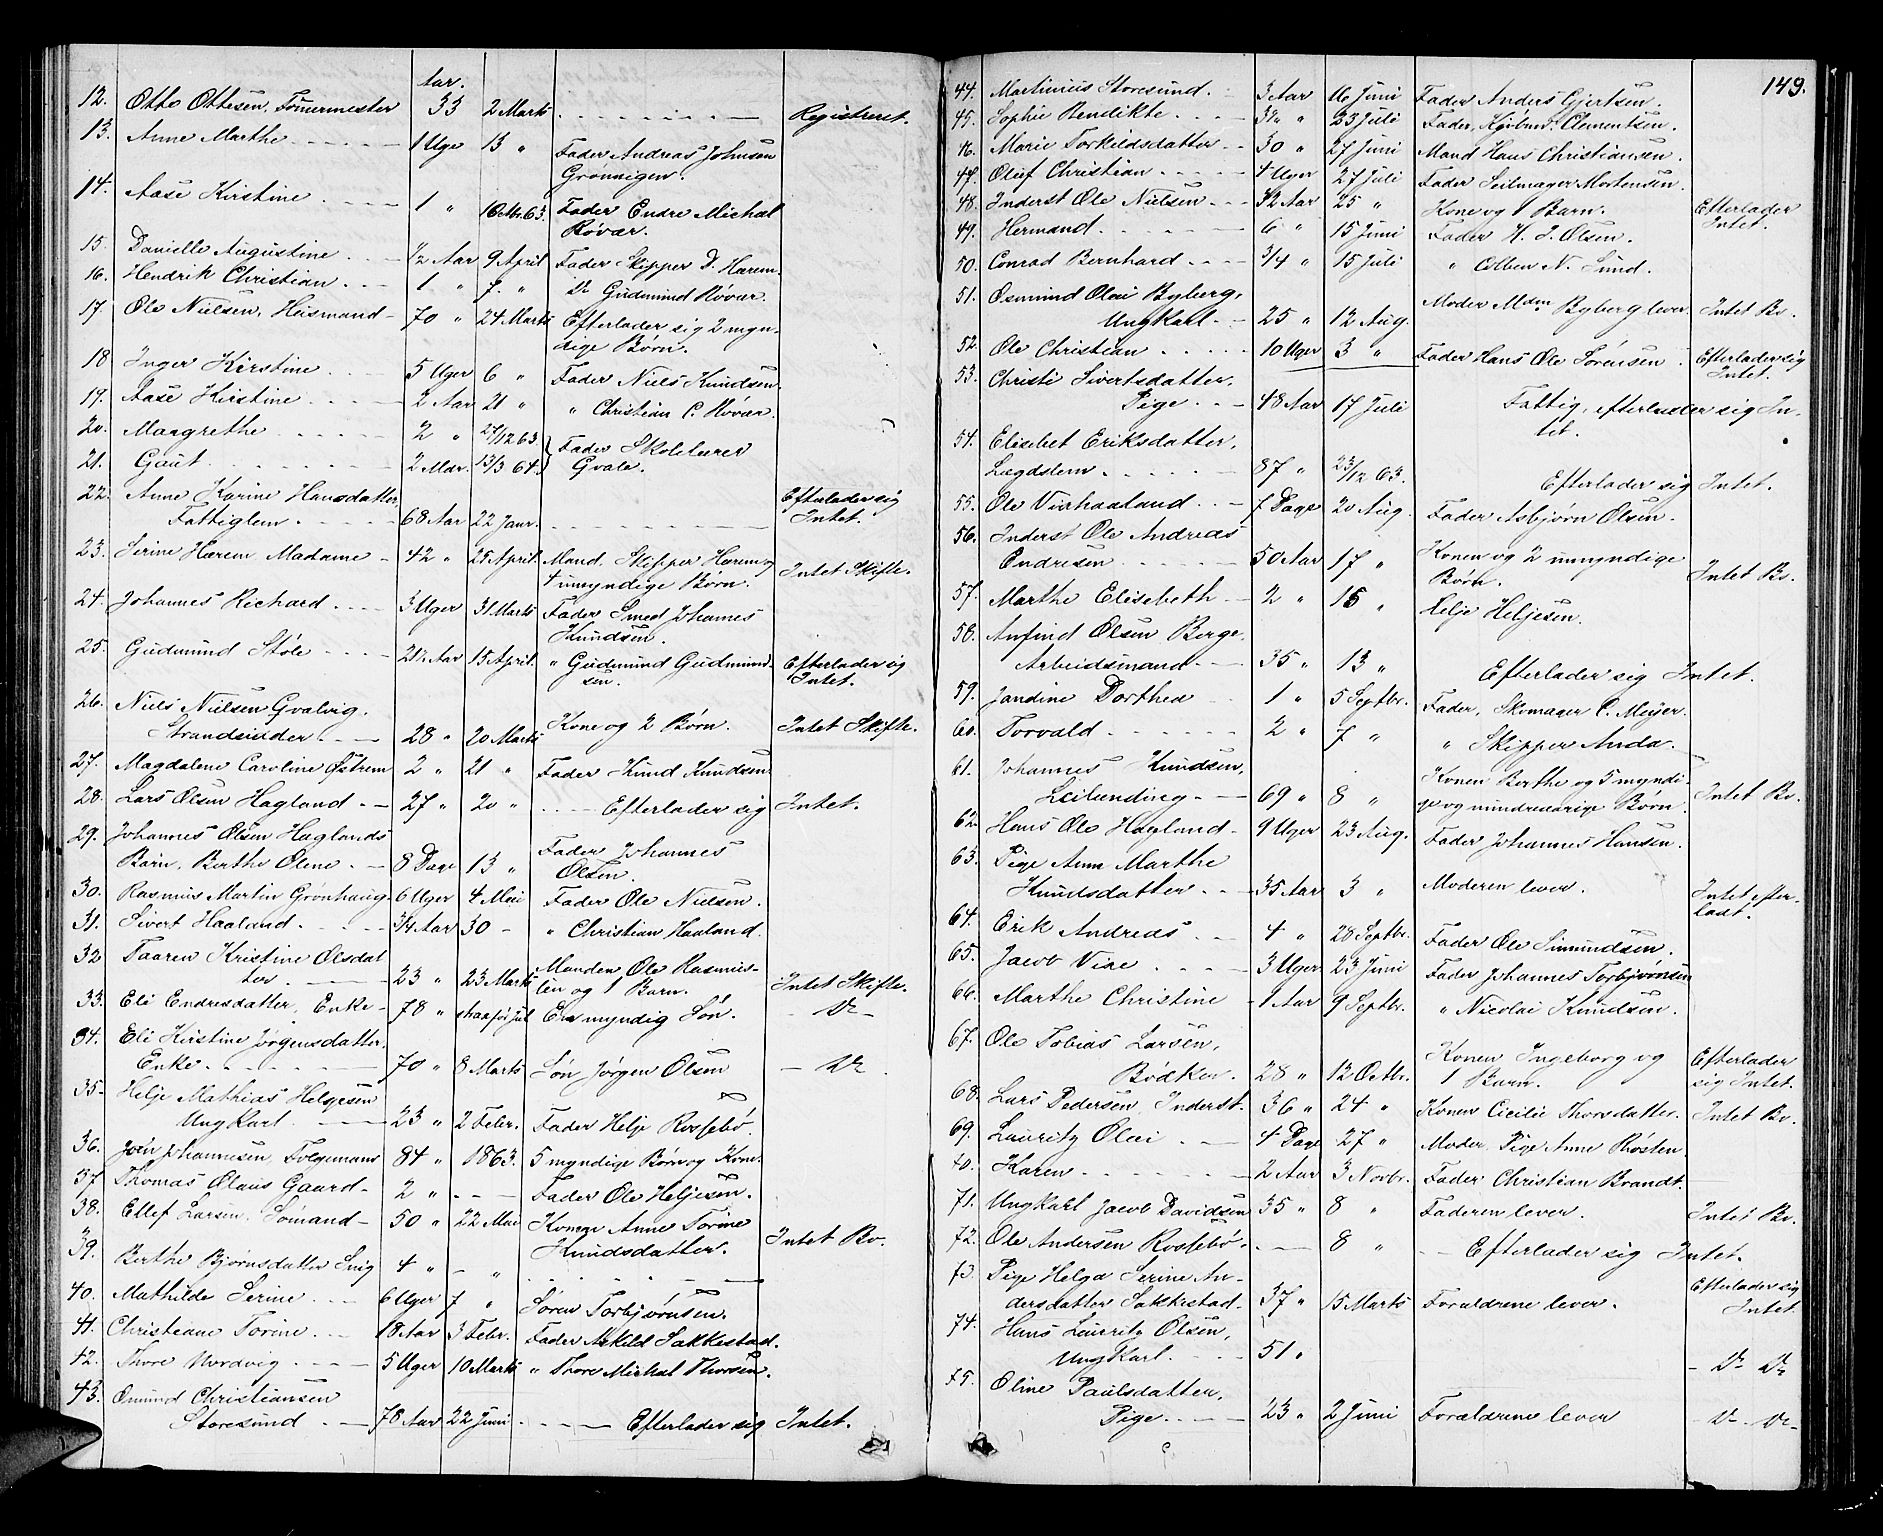 149.
Aar.
12. Otto Ottesen, Tømermester 33 2 Marts Registreret.
13. Anne Marthe 1 Uge 13 " Fader Andreas Johnsen
Grønnigen.
14. Aase Kirstine 1 " 63. Fader Endre Michal
Røvær.
15. Danielle Augustine 1/2 Aar 9 April Fader Skipper D. Hærem.
16. Hendrik Christian 1 " 7. " Do Gudmund Røvær.
17. Ole Nielsen, Huusmand 70 " 24 Marts Efterlader sig 2 myn-
dige Børn.
18 Inger Kirstine 5 Uger 6 " Fader Niels Knudsen
19. Aase Kirstine 2 Aar 21 " " Christian C. Røvær.
20. Margrethe 2 " 27/12 63. Fader Skolelærer
21. Gaut 2 Mdr. 13/3 64. Gvale.
22. Anne Karine Hansdatter, Efterlader sig
Fattiglem 68 Aar 22 Janr. Intet.
23. Serine Hærem Madame 42 " 25 April. Mand, Skipper Hærem og
4 umyndige Børn. Intet Skifte.
24. Johannes Richard 3 Uger 31 Marts Fader Smed Johannes
Knudsen.
25. Gudmund Støle 2 1/2 Aar 15 April. " Gudmund Gudmund- Efterlader sig
sen. Intet.
26. Niels Nielsen Gvalvig.
Strandsidder 28 " 20 Marts Kone og 2 Børn. Intet Skifte.
27. Magdalene Caroline Østrem 2 " 21 " Fader Knud Knudsen
28. Lars Olsen Hagland 27 " 20 " Efterlader sig Intet.
29. Johannes Olsen Haglands
Barn, Berthe Oline 8 Dage 13 " Fader Johannes
Olsen.
30. Rasmus Martin Grønhaug 6 Uger 4 Mai Fader Ole Nielsen.
31. Sivert Haaland 3/4 Aar 30 - " Christian Haaland.
32 Taaren Kristine Olsdat
ter. 23 " 23 Marts Manden Ole Rasmus-
sen og 1 Barn. Intet Skifte.
33. Eli Endresdatter, Enke 78 " strax før Jul En myndig Søn. Do
34. Eli Kirstine Jørgensdatter,
Enke 70 " 8 Marts Søn Jørgen Olsen Do
35. Helje Mathias Helgesen
Ungkarl 23 " 2 Febr. Fader Helje Rossebø.
36. Johannesen, Folgemand 84 " 1863. 5 myndige Børn og Kone.
37 Thomas Olaus Gaard 2 " Fader Ole Heljesen.
38. Ellef Larsen, Sømand 50 " 22 Mai Konen Anne Torine
Knudsdatter. Intet Bo.
39. Berthe Bjørnsdatter Snig 4 " "
40. Mathilde Serine 6 Uger 7 " Søren Torbjørnsen.
41. Christiane Torine 18 Aar 3 Febr. Fader Askild Sakkestad.
42. Thore Nordvig 5 Uger 10 Marts " Thore Michal Thorsen.
43. Omund Christiansen
Storesund 78 Aar 22 Juni Efterlader sig Intet.
44. Martinius Storesund. 3 Aar 16 Juni Fader Anders Gjertsen.
45. Sophie Bendikte 3/4 " 23 Juli Fader, Kjøbm. Clementsen.
46. Marie Torkildsdatter 30 " 27 Juni Mand Hans Christiansen.
47. Oluf Christian 4 Uger 27 Juli Fader Seilmager Mortensen.
48. Inderst Ole Nielsen 32 Aar 25 " Kone og 1 Barn. Efterlader
Intet.
49. Hermand 6 " 15 Juni Fader H. J. Olsen.
50. Conrad Bernhard 3/4 " 15 Juli " Colben N. Sund.
51. Osmund Olai Byberg,
Ungkarl. 25 " 12 Aug. Moder Mdm. Byberg lever. Intet Bo.
52. Ole Christian 10 Uger 3 " Fader Hans Ole Sørensen Efterlader sig
Intet.
53. Christi Sivertsdatter,
Pige 48 Aar 17 Juli Fattig, efterlader sig In-
tet.
54. Elisebet Eriksdatter,
Lægdslem. 87 " 23/12 63. Efterlader sig Intet.
55. Ole Vierhaaland 7 Dage 20 Aug. Fader Asbjørn Olsen.
56. Inderst Ole Andreas
Endresen 50 Aar 17 " Konen og 2 umyndige
Børn. Intet Bo.
57. Marthe Elisebeth 2 " 15 " Helje Heljesen.
58. Anfind Olsen Berge.
Arbeidsmand 35 " 13 " Efterlader sig Intet.
59. Jandine Dorthea 1 " 5 Septbr. Fader, Skomager C. Meyer.
60. Torvald 2 " 7 " " Skipper Anda.
61. Johannes Knudsen,
Leilending 69 " 8 " Konen Berthe og 5 myndi-
ge og mindreaarige Børn. Intet Bo.
62. Hans Ole Hagland 9 Uger 23 Aug. Fader Johannes Hansen.
63. Pige Ann Marthe
Knudsdatter 35 Aar 3 " Moderen lever. Intet efter-
ladt.
64. Erik Andreas 4 " 28 Septbr. Fader Ole Simundsen.
65. Jacob Viae 3 Uger 23 Juni Fader Johannes Torbjørnsen
66. Marthe Christine 1 Aar 9 Septbr. " Nicolai Knudsen.
67. Ole Tobias Larsen,
Bødker. 28 " 12 Octbr. Konen Ingeborg og Efterlader
1 Barn. sig Intet.
68. Lars Pedersen, Inderst. 36 " 24 " Konen Cicilie Thorsdatter. Intet Bo.
69. Lauritz Olai 4 Dage 27 " Moder, Pige Anne Røsten
70. Karen 2 Aar 3 Novbr. Fader Christian Brandt.
71. Ungkarl Jacob Davidsen 35 " 8 " Faderen lever. Intet Bo.
72. Ole Andersen Rossebø. 8 " Efterlader sig Intet.
73. Pige Helga Serine An-
dersdatter Sakkestad 37 " 15 Marts Forældrene lever. Efterlader sig
Intet.
74. Hans Lauritz Olsen,
Ungkarl. 51 " Do Do
75. Oline Paulsdatter,
Pige 23 " 2 Juni Forældrene lever Do Do